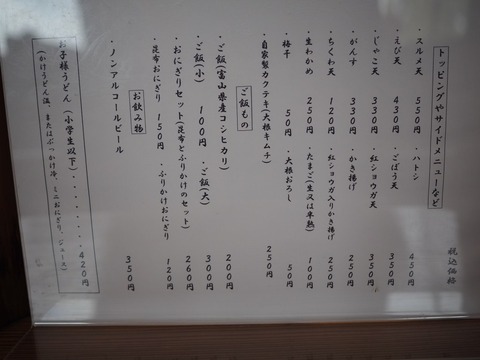 トッピングやサイドメニューなど
税込価格
・スルメ天 550円 ・ハトシ 450円
・えび天 430円 ・ごぼう天 350円
・じゃこ天 330円 ・紅ショウガ天 350円
・がんす 330円 ・かき揚げ 250円
・ちくわ天 120円 ・紅ショウガ入りかき揚げ 250円
・生わかめ 250円 ・たまご(生又は半熟) 100円
・梅干 50円 ・大根おろし 50円
・自家製カクテキ(大根キムチ) 250円
ご飯もの
・ご飯(富山県産コシヒカリ) 200円
・ご飯(小) 100円 ・ご飯(大) 300円
・おにぎりセット(昆布とふりかけのセット) 260円
・昆布おにぎり 150円 ・ふりかけおにぎり 120円
お飲み物
・ノンアルコールビール 350円
お子様うどん(小学生以下)・・・・・・・・420円
(かけうどん温、またはぶっかけ冷、ミニおにぎり、ジュース)